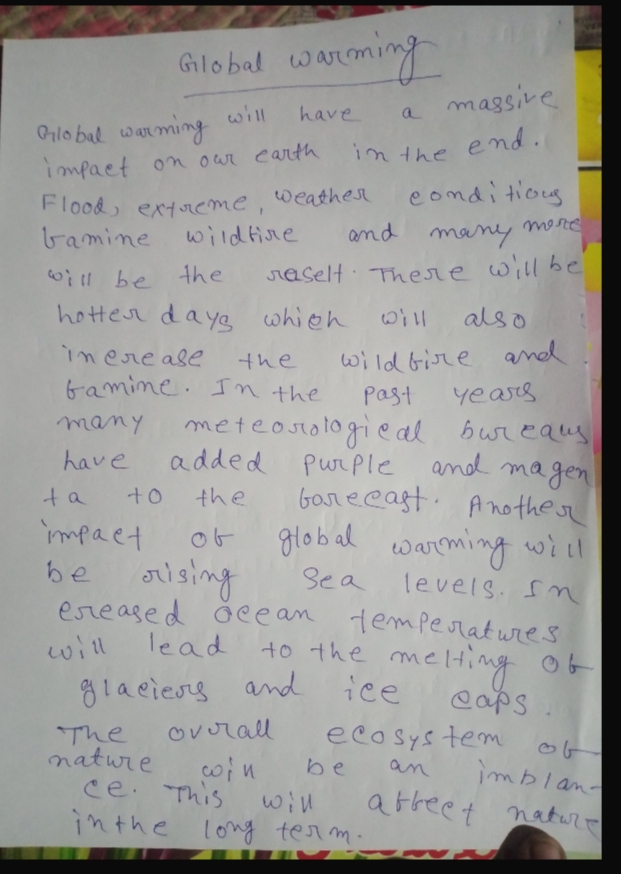 Global warming
Global warming will have a massive
impact on our earth in the end.
Flood, extreme, weather conditions
famine wildfire and many more
will be the reselt. There will be
hotter days which will also
increase the wildfire and
famine. In the past years
many meteorological bureaus
have added purple and magen
ta to the forecast. Another
impact of global warming will
be rising sea levels. In
creased ocean temperatures
will lead to the melting of
glaciers and ice caps.
The overall ecosystem of
nature will be an imblan-
ce. This will affect nature
in the long term.